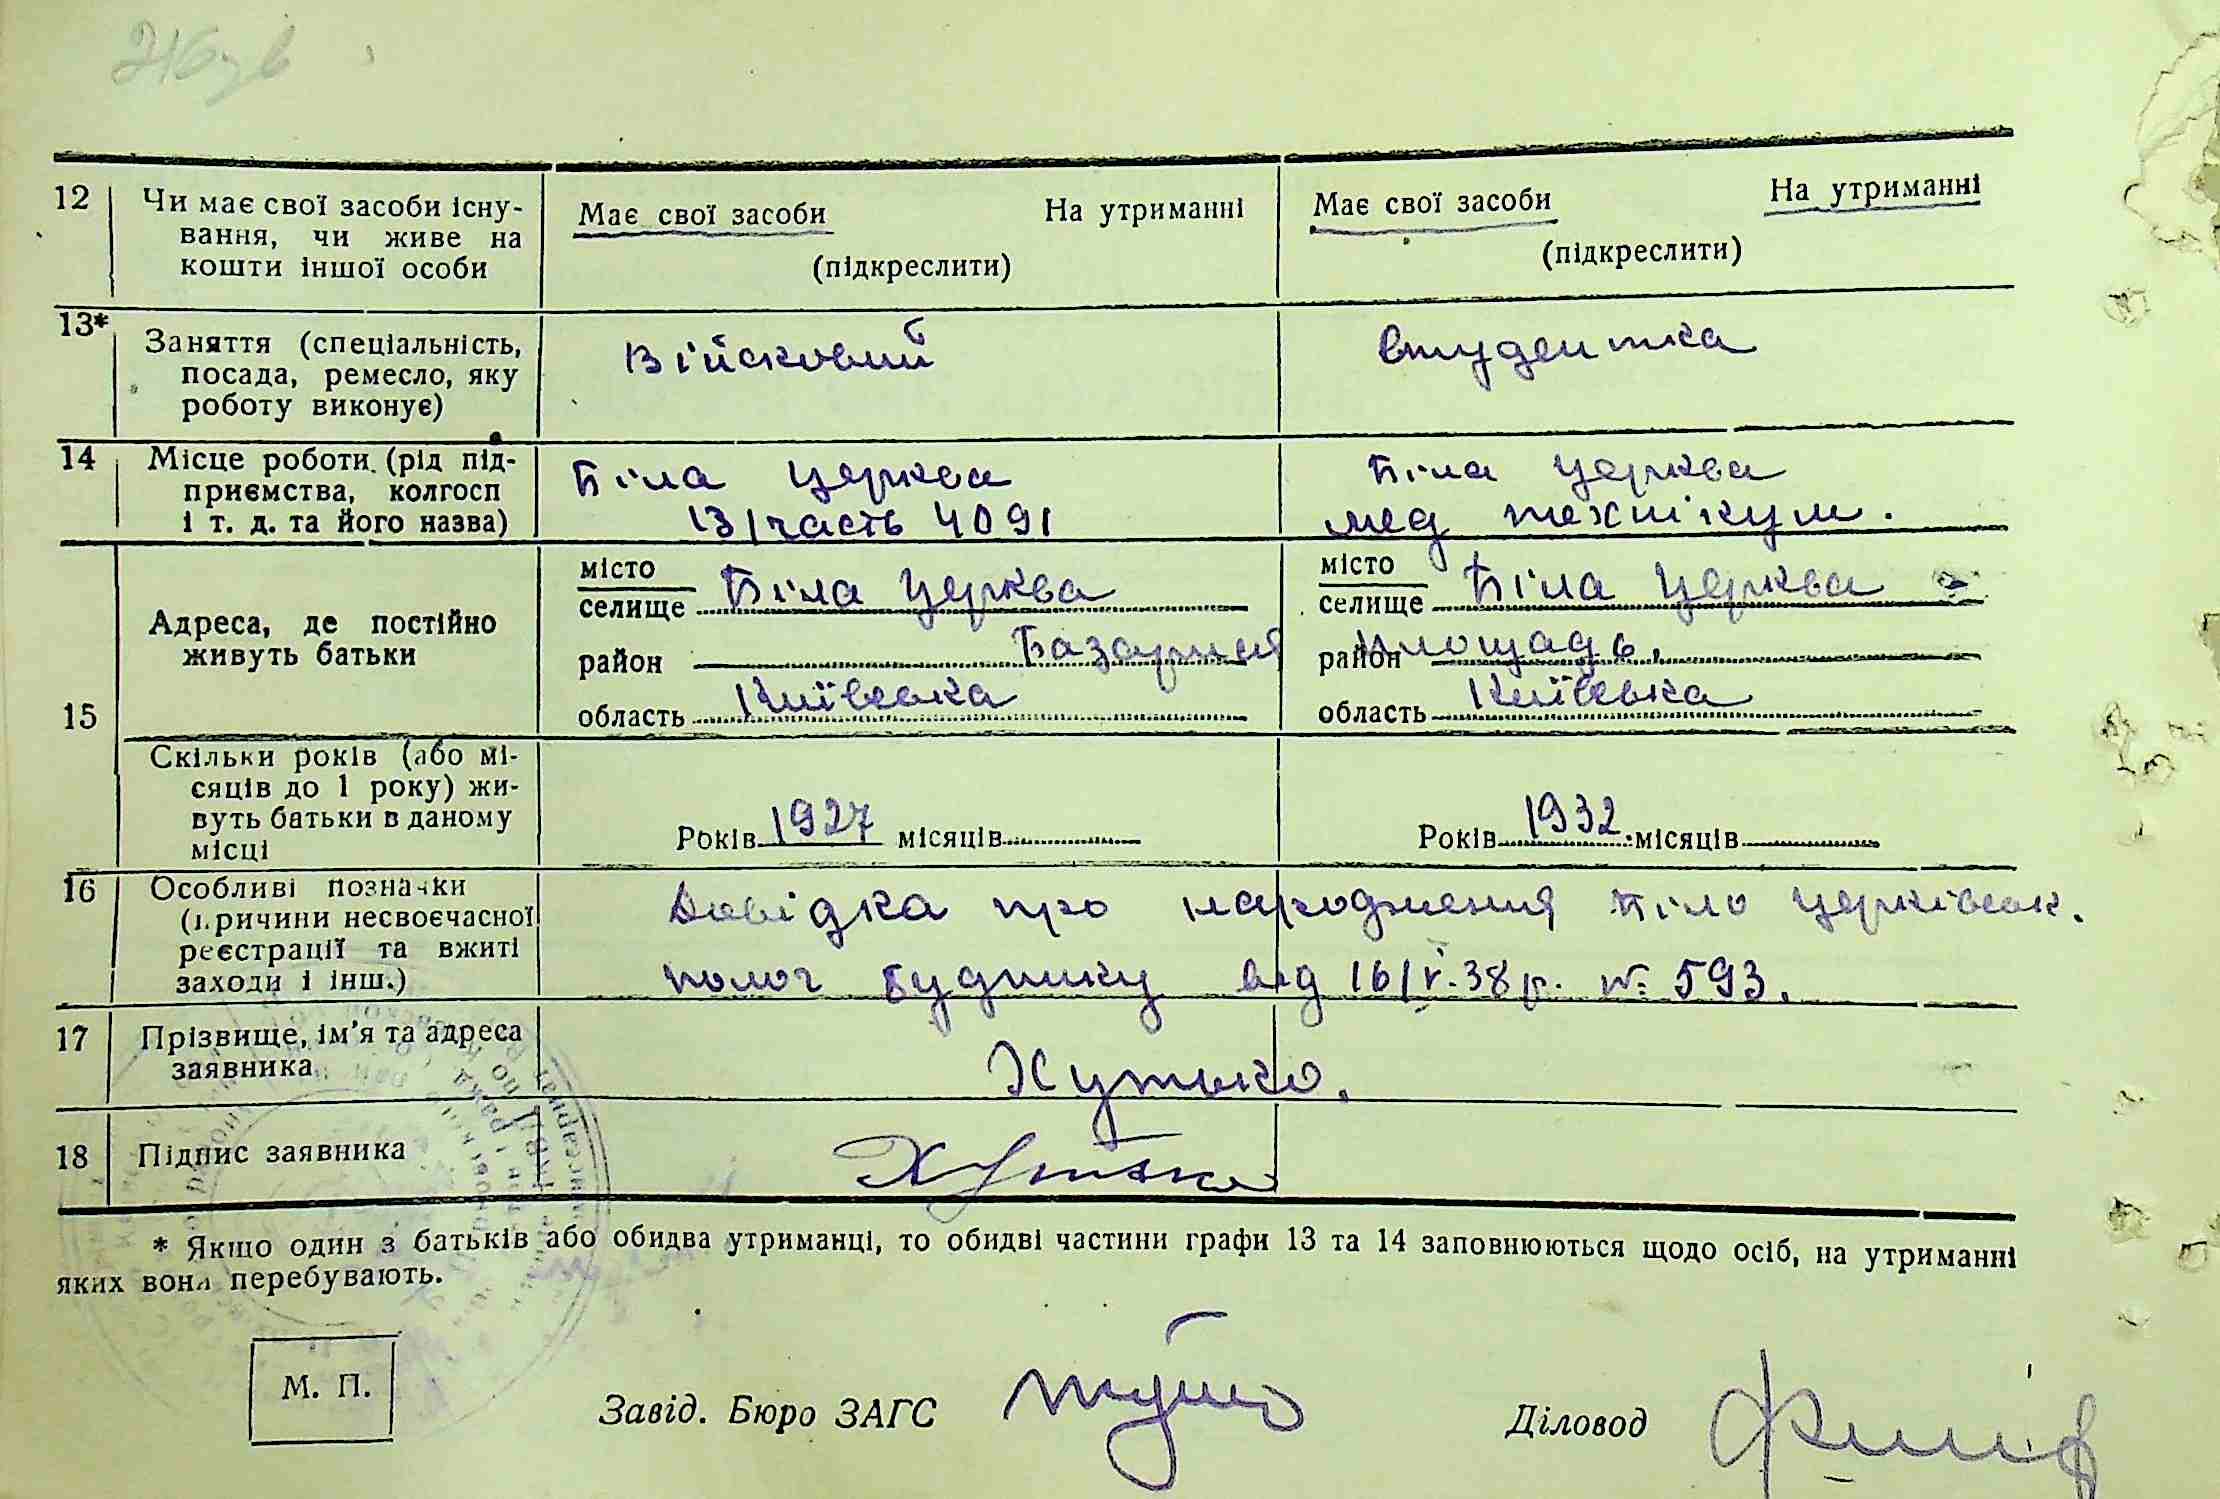 12 Чи має свої засоби існу-
вання, чи живе на
кошти іншої особи
Має свої засоби На утриманні
(підкреслити)
Має свої засоби На утриманні
(підкреслити)
13* Заняття (спеціальність,
посада, ремесло, яку
роботу виконує)
Військовий
Студентка
14 Місце роботи (рід під-
приємства, колгосп
і т. д. та його назва)
Біла Церква
В/часть 4091
Біла Церква
мед технікум.
15
Адреса, де постійно
живуть батьки
місто
селище Біла Церква
район Базарная
область Київська
місто
селище Біла Церква
район площадь,
область Київська
Скільки років (або мі-
сяців до 1 року) жи-
вуть батьки в даному
місці
Років 1927 місяців
Років 1932. місяців
16 Особливі позначки
(причини несвоєчасної
реєстрації та вжиті
заходи і інш.)
Довідка про народження Біло Церківськ.
полог будинку від 16/V.38 р. № 593.
17 Прізвище, ім’я та адреса
заявника
Хутько.
18 Підпис заявника
Хутько
* Якщо один з батьків або обидва утриманці, то обидві частини графи 13 та 14 заповнюються щодо осіб, на утриманні
яких вони перебувають.
М. П.
Завід. Бюро ЗАГС
Діловод